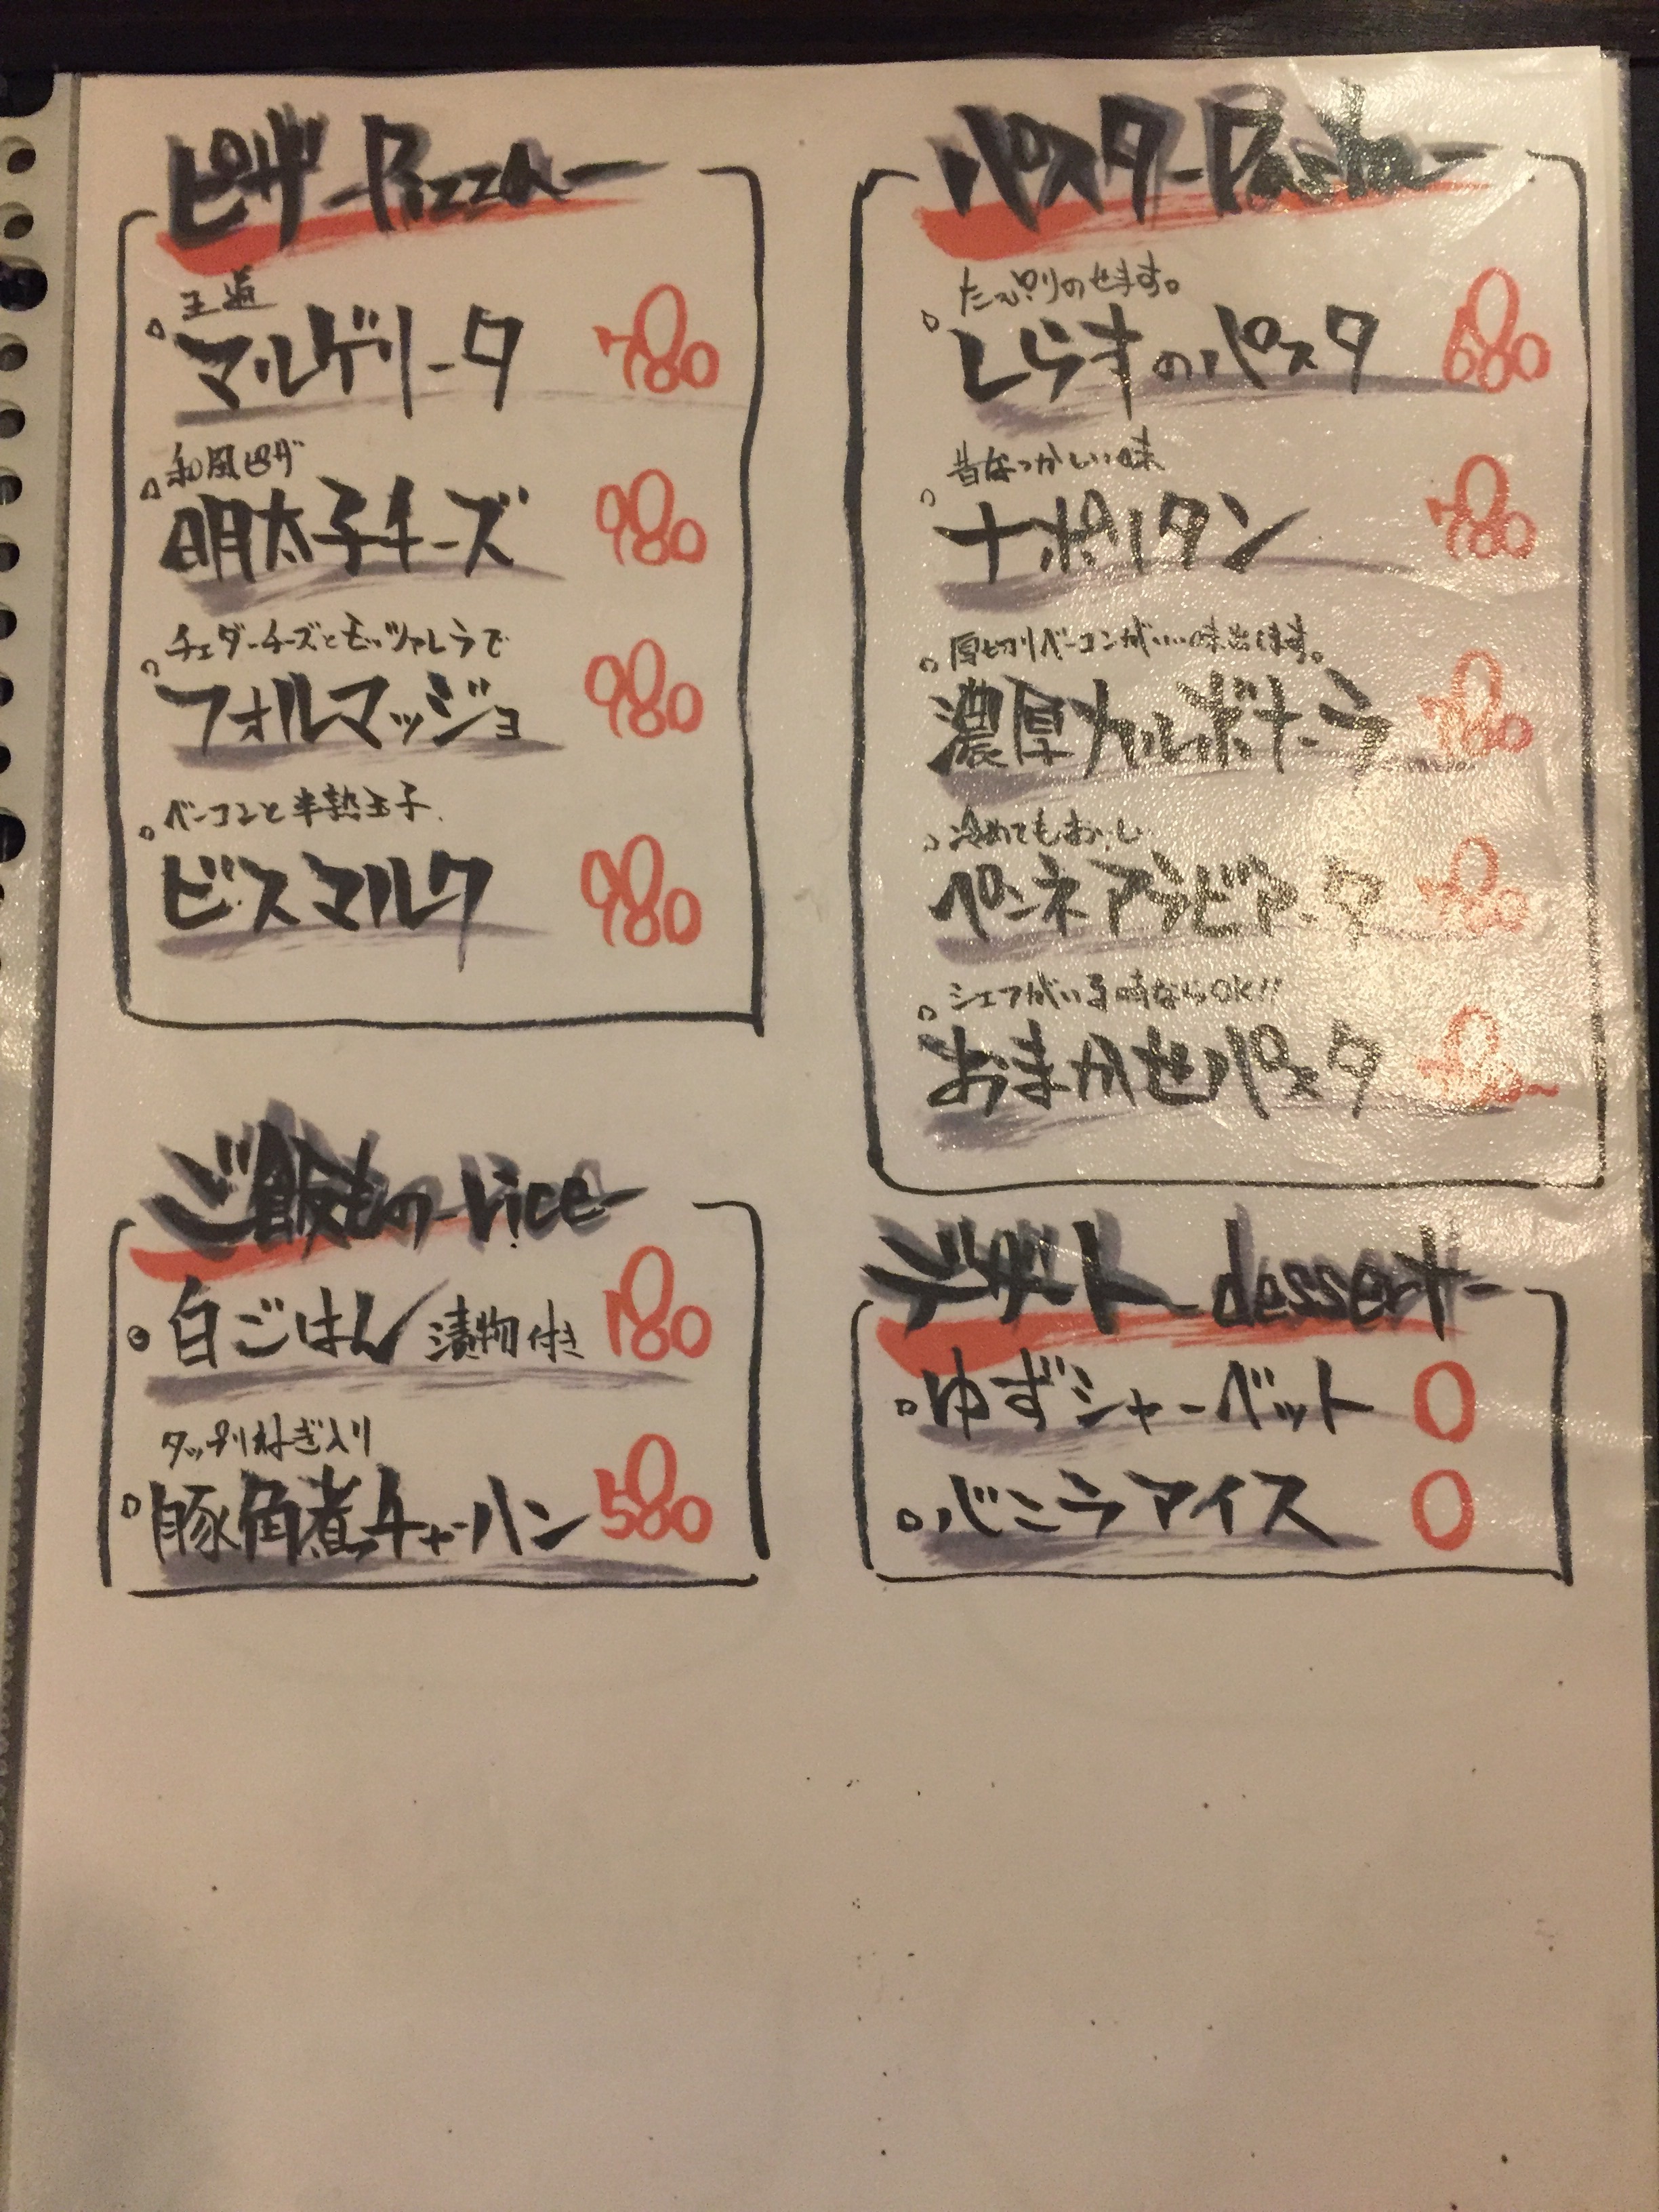 ピザ -Pizza-
王道
マルゲリータ 780
和風ピザ
明太子チーズ 980
チェダーチーズとモッツァレラで
フォルマッジョ 980
ベーコンと半熟玉子
ビスマルク 980
ご飯もの -rice-
白ごはん 漬物付き 180
タップリねぎ入り
豚角煮チャーハン 580
パスタ -Pasta-
たっぷりのせます。
しらすのパスタ 680
昔なつかしい味
ナポリタン 780
厚切りベーコンがいい味出してます。
濃厚カルボナーラ 780
冷めてもおいしい
ペンネアラビアータ 780
シェフがいる時ならOK!!
おまかせパスタ 780~
デザート -dessert-
ゆずシャーベット 0
バニラアイス 0